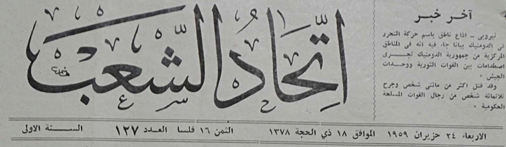 آخر خبر
نيويورك - اذاع ناطق باسم حركة التحرر
في الدومنيك بيانا جاء فيه انه في المناطق
المركزية من جمهورية الدومنيك تجري
اصطدامات بين القوات الثورية ووحدات
الجيش .
وقد قتل اكثر من مائتي شخص وجرح
ثلاثمائة شخص من رجال القوات المسلحة
الحكومية .
اتحاد الشعب
الاربعاء ٢٤ حزيران ١٩٥٩ الموافق ١٨ ذي الحجة ١٣٧٨ الثمن ١٦ فلسا العدد ١٢٧ السنة الاولى